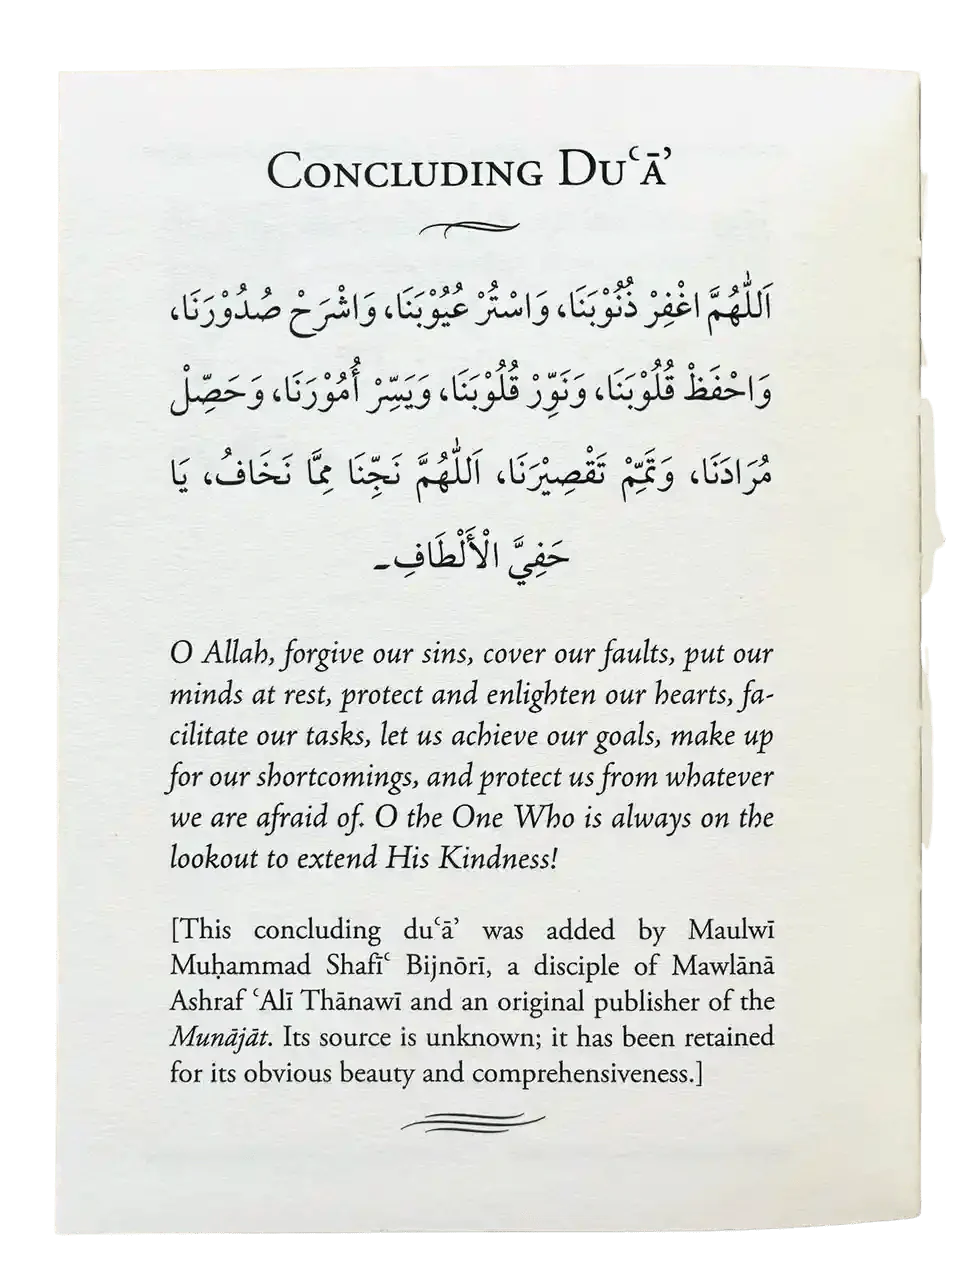 Concluding Duʿāʾ
اَللّٰهُمَّ اغْفِرْ ذُنُوْبَنَا، وَاسْتُرْ عُيُوْبَنَا، وَاشْرَحْ صُدُوْرَنَا،
وَاحْفَظْ قُلُوْبَنَا، وَنَوِّرْ قُلُوْبَنَا، وَيَسِّرْ أُمُوْرَنَا، وَحَصِّلْ
مُرَادَنَا، وَتَمِّمْ تَقْصِيْرَنَا، اَللّٰهُمَّ نَجِّنَا مِمَّا نَخَافُ، يَا
حَفِيَّ الْأَلْطَافِ۔
O Allah, forgive our sins, cover our faults, put our
minds at rest, protect and enlighten our hearts, fa-
cilitate our tasks, let us achieve our goals, make up
for our shortcomings, and protect us from whatever
we are afraid of. O the One Who is always on the
lookout to extend His Kindness!
[This concluding duʿāʾ was added by Maulwī
Muḥammad Shafīʿ Bijnōrī, a disciple of Mawlānā
Ashraf ʿAlī Thānawī and an original publisher of the
Munājāt. Its source is unknown; it has been retained
for its obvious beauty and comprehensiveness.]